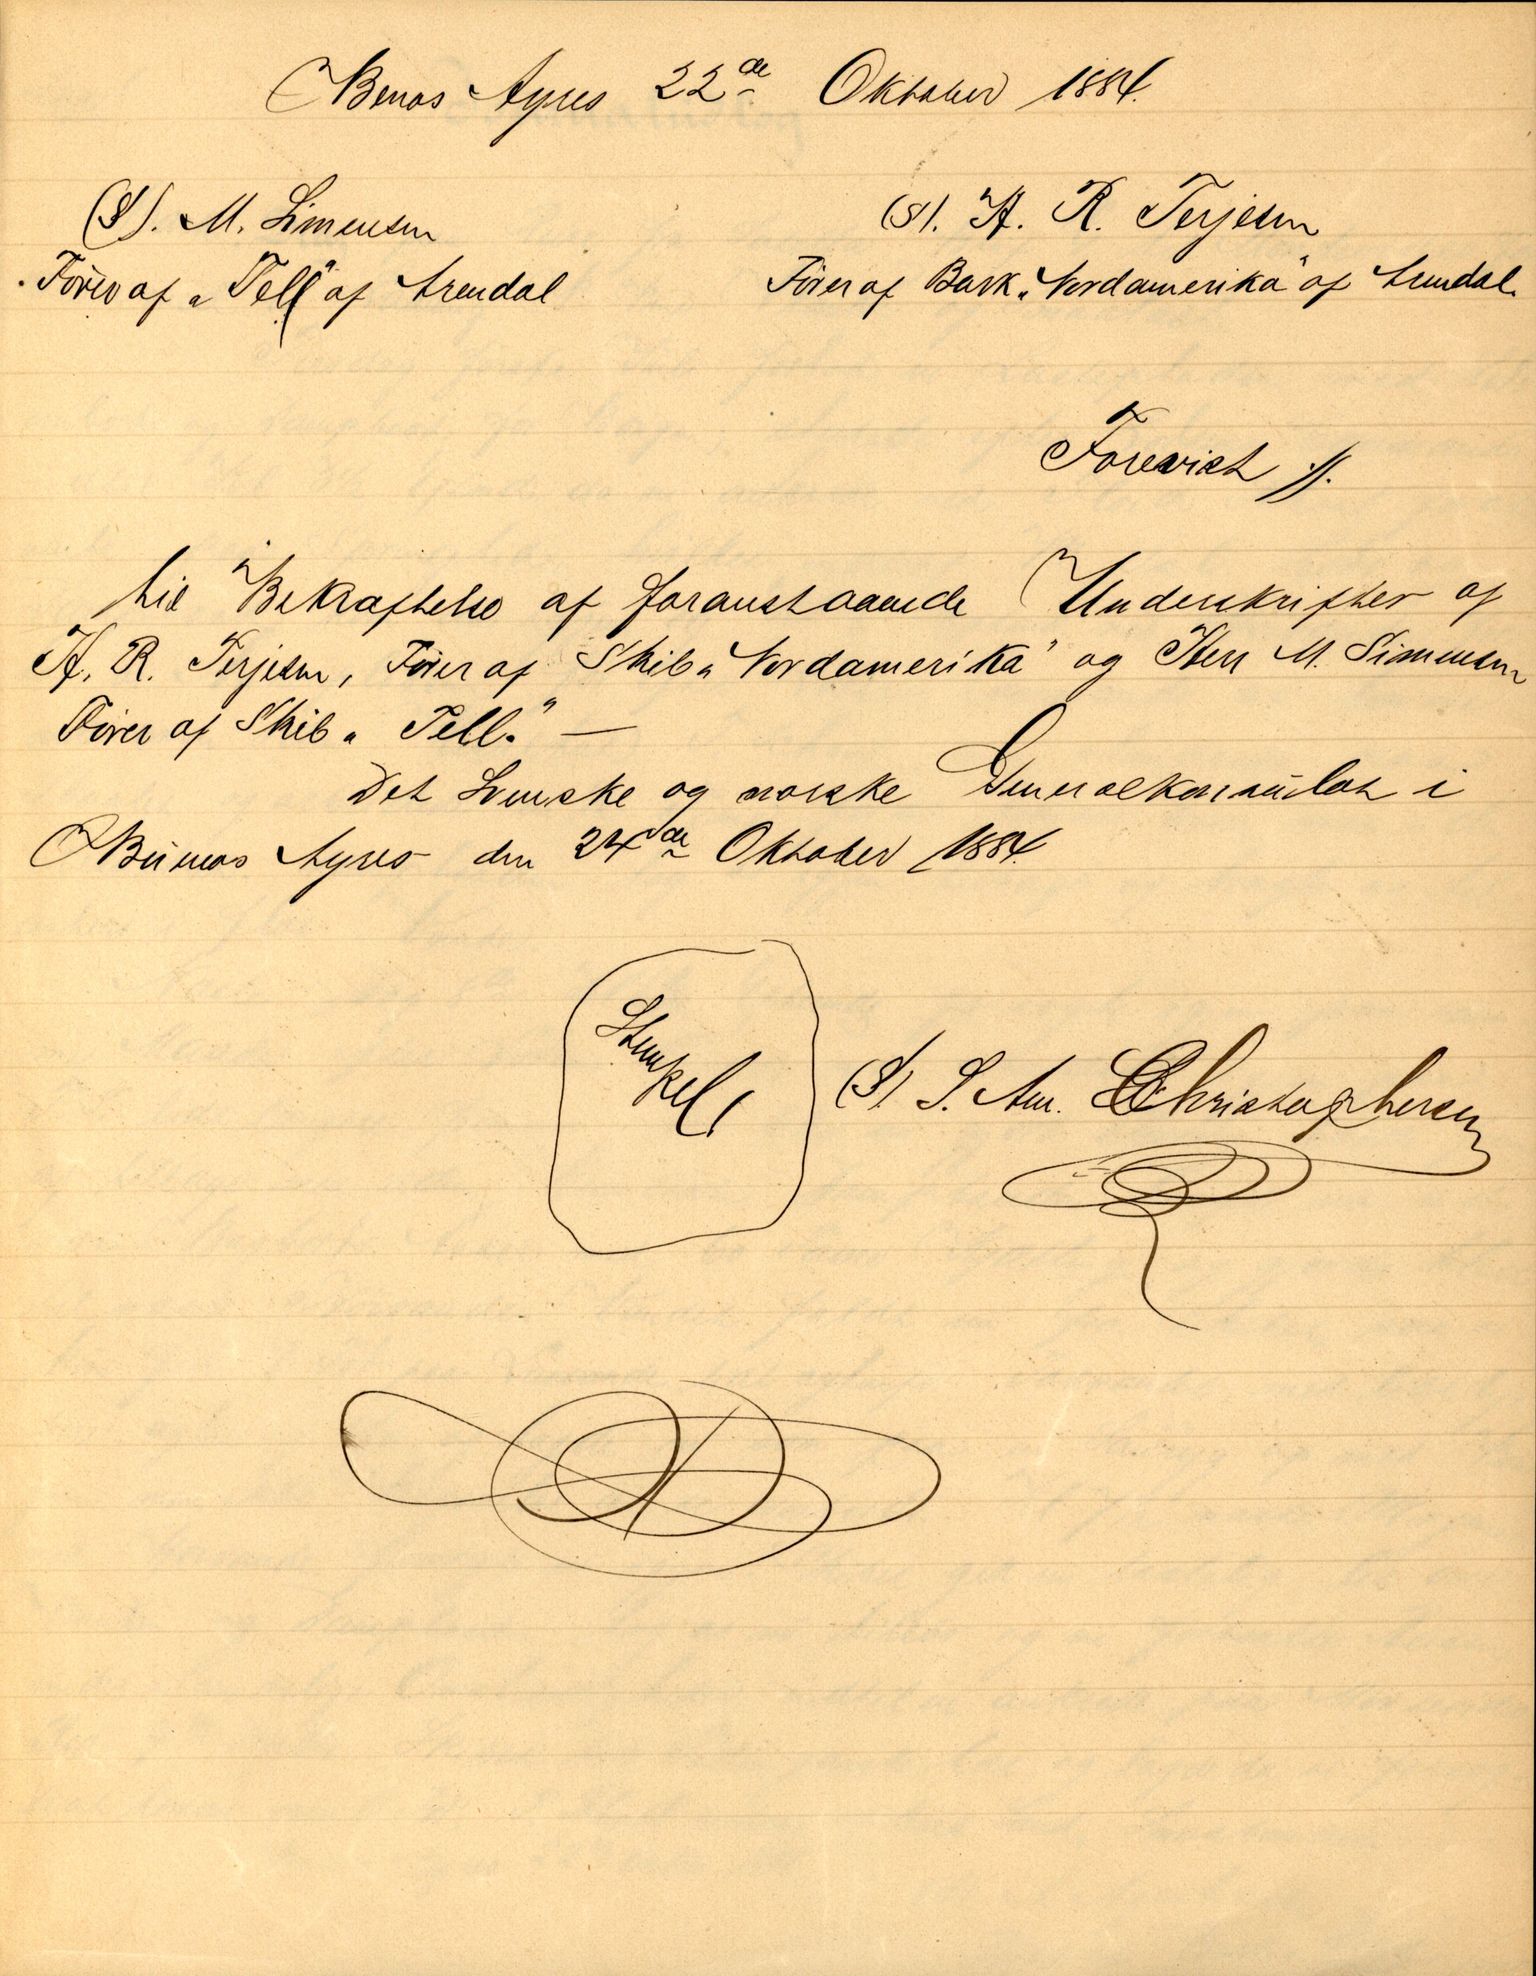 Benos Ayres 22de Oktober 1884.
(S). M. Simensen
Fører af „Tell" af Arendal
(S). H. R. Terjesen
Fører af Bark „Nordamerika" af Arendal.
Forevist //.
til Bekræftelse af foranstaaende Underskrifter af
H. R. Terjesen, Fører af Skib „Nordamerika" og Herr M. Simensen
Fører af Skib „Tell." —
Det Svenske og norske Generalkonsulat i
Buenos Ayres den 24de Oktober 1884.
Stempel
(S). S. Am. Christophersen